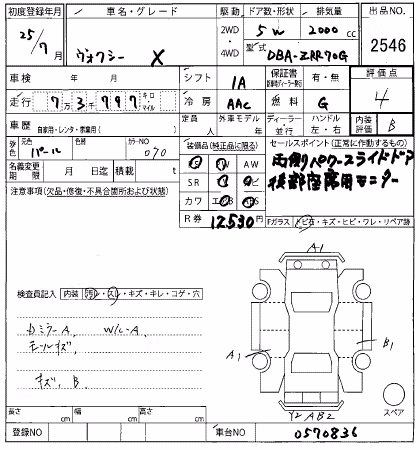 初度登録年月 車名・グレード 駆動 ドア数・形状 排気量 出品NO.
25/7月 ヴォクシー X 2WD・4WD 5W 2000cc 2546
型式 DBA-ZRR70G
車検 年 月 シフト IA 保証書 有・無 評価点
走行 7万3千797 キロ マイル 冷房 AAC 燃料 G 4
車歴 自家用・レンタ・事業用( ) 定員 人 外車モデル 年 ディーラー・並行 ハンドル 左・右 内装評価 B
元色 パール 色替 カラーNO 070 装備品(純正品に限る) セールスポイント(正常に作動するもの)
名義変更期限 月 日迄 積載 t PW AW 両側パワースライドドア
注意事項(欠品・修復・不具合箇所および状態) SR ナビ 後部座席用モニター
カワ エアB ABS
R券 12530円 Fガラス トビ石・キズ・ヒビ・ワレ・リペア跡
A1
検査員記入 内装 汚レ・スレ・キズ・キレ・コゲ・穴
カミラーA W/L-A
モールキズ
A1 B1
キズ、B
Y2AB2 スペア
長さ cm 幅 cm 高さ cm
登録NO 車台NO 0570836